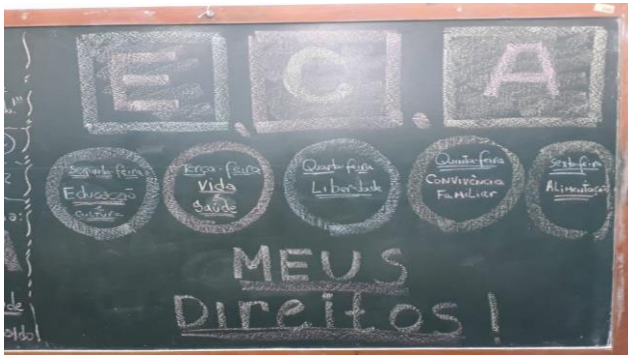 E.C.A
Segunda-feira
Educação
Cultura
Terça-feira
Vida
e
Saúde
Quarta-feira
Liberdade
Quinta-feira
CONVIVÊNCIA
FAMILIAR
Sexta-feira
Alimentação
MEUS
DIREITOS!